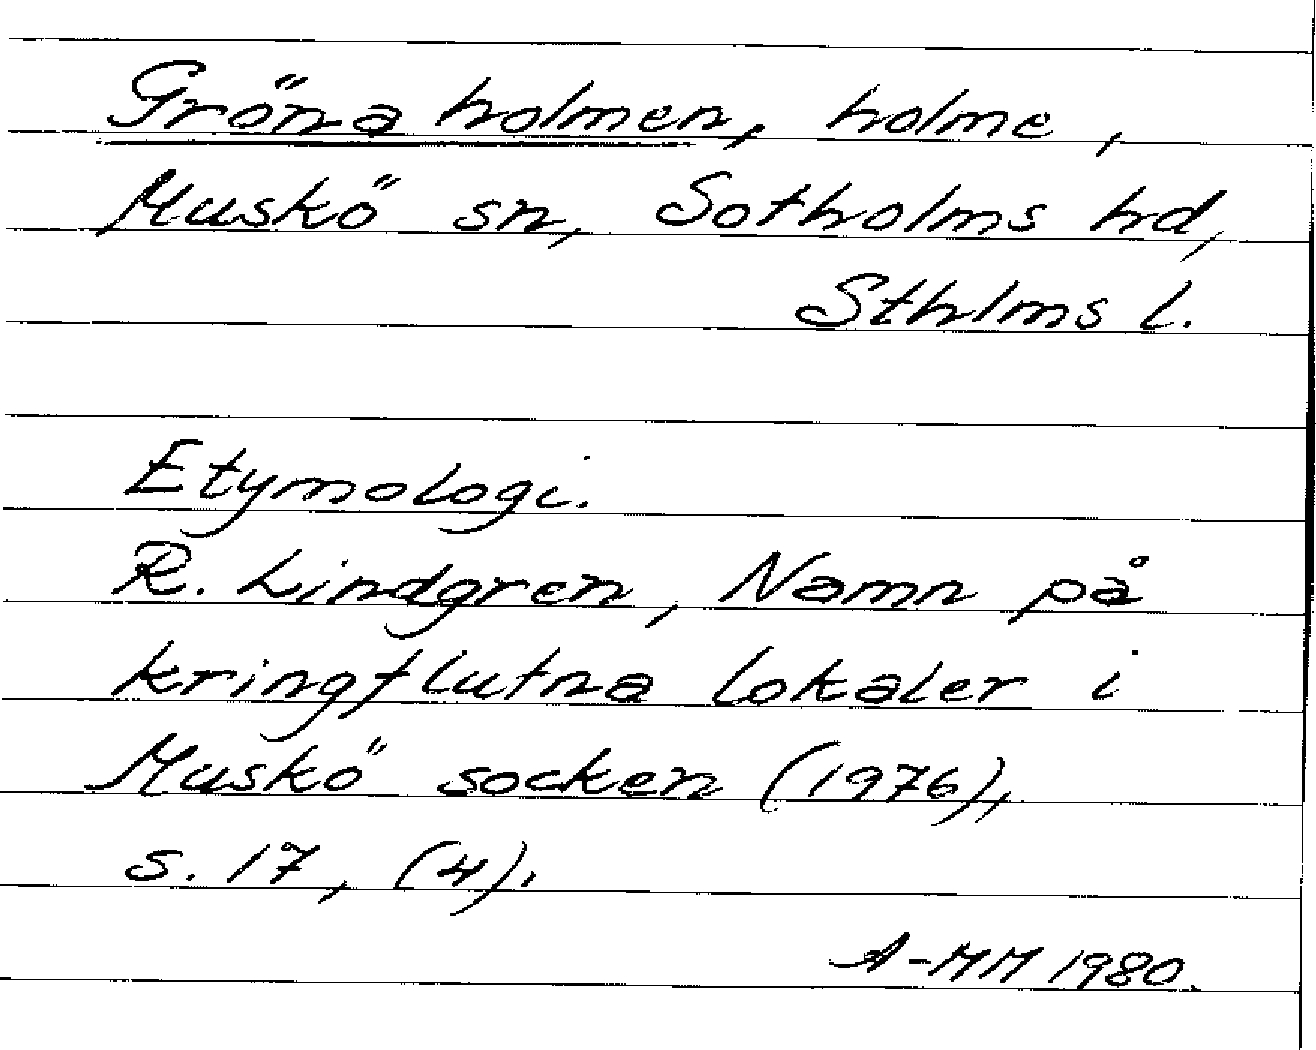 Gröna holmen, holme,
Muskö sn, Sotholms hd,
Sthlms l.
Etymologi.
R. Lindgren, Namn på
kringflutna lokaler i
Muskö socken (1976),
s. 17, (4).
A-MM 1980.